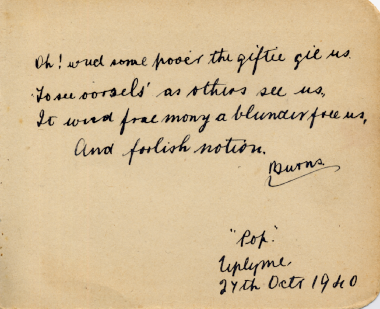 Oh! wud some pooer the giftie gie us
To see oorsels' as others see us,
It wud frae mony a blunder free us,
And foolish notion.
Burns
"Pop."
Uplyme.
27th Octr 1940